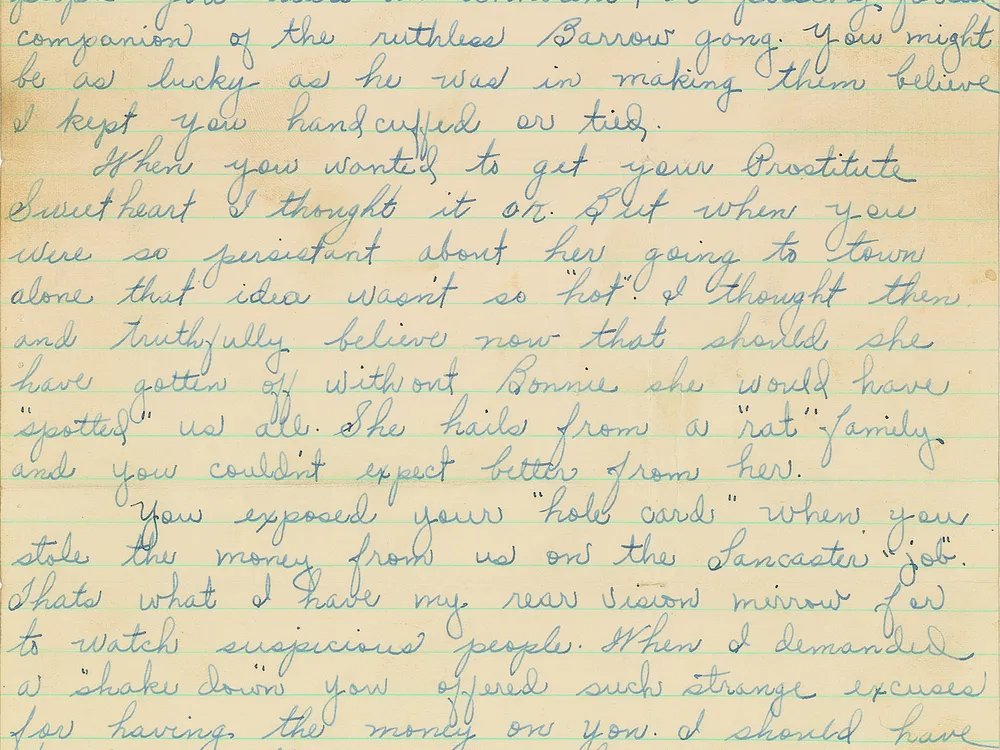 people you
companion of the ruthless Barrow gang. You might
be as lucky as he was in making them believe
I kept you handcuffed or tied.
When you wanted to get your Prostitute
Sweetheart I thought it OK. But when you
were so persistant about her going to town
alone that idea wasn't so "hot". I thought then
and truthfully believe now that should she
have gotten off without Bonnie she would have
"spotted" us all. She hails from a "rat" family
and you couldn't expect better from her.
You exposed your "hole card" when you
stole the money from us on the Lancaster "job".
Thats what I have my rear vision mirrow for
to watch suspicious people. When I demanded
a "shake down" you offered such strange excuses
for having the money on you. I should have